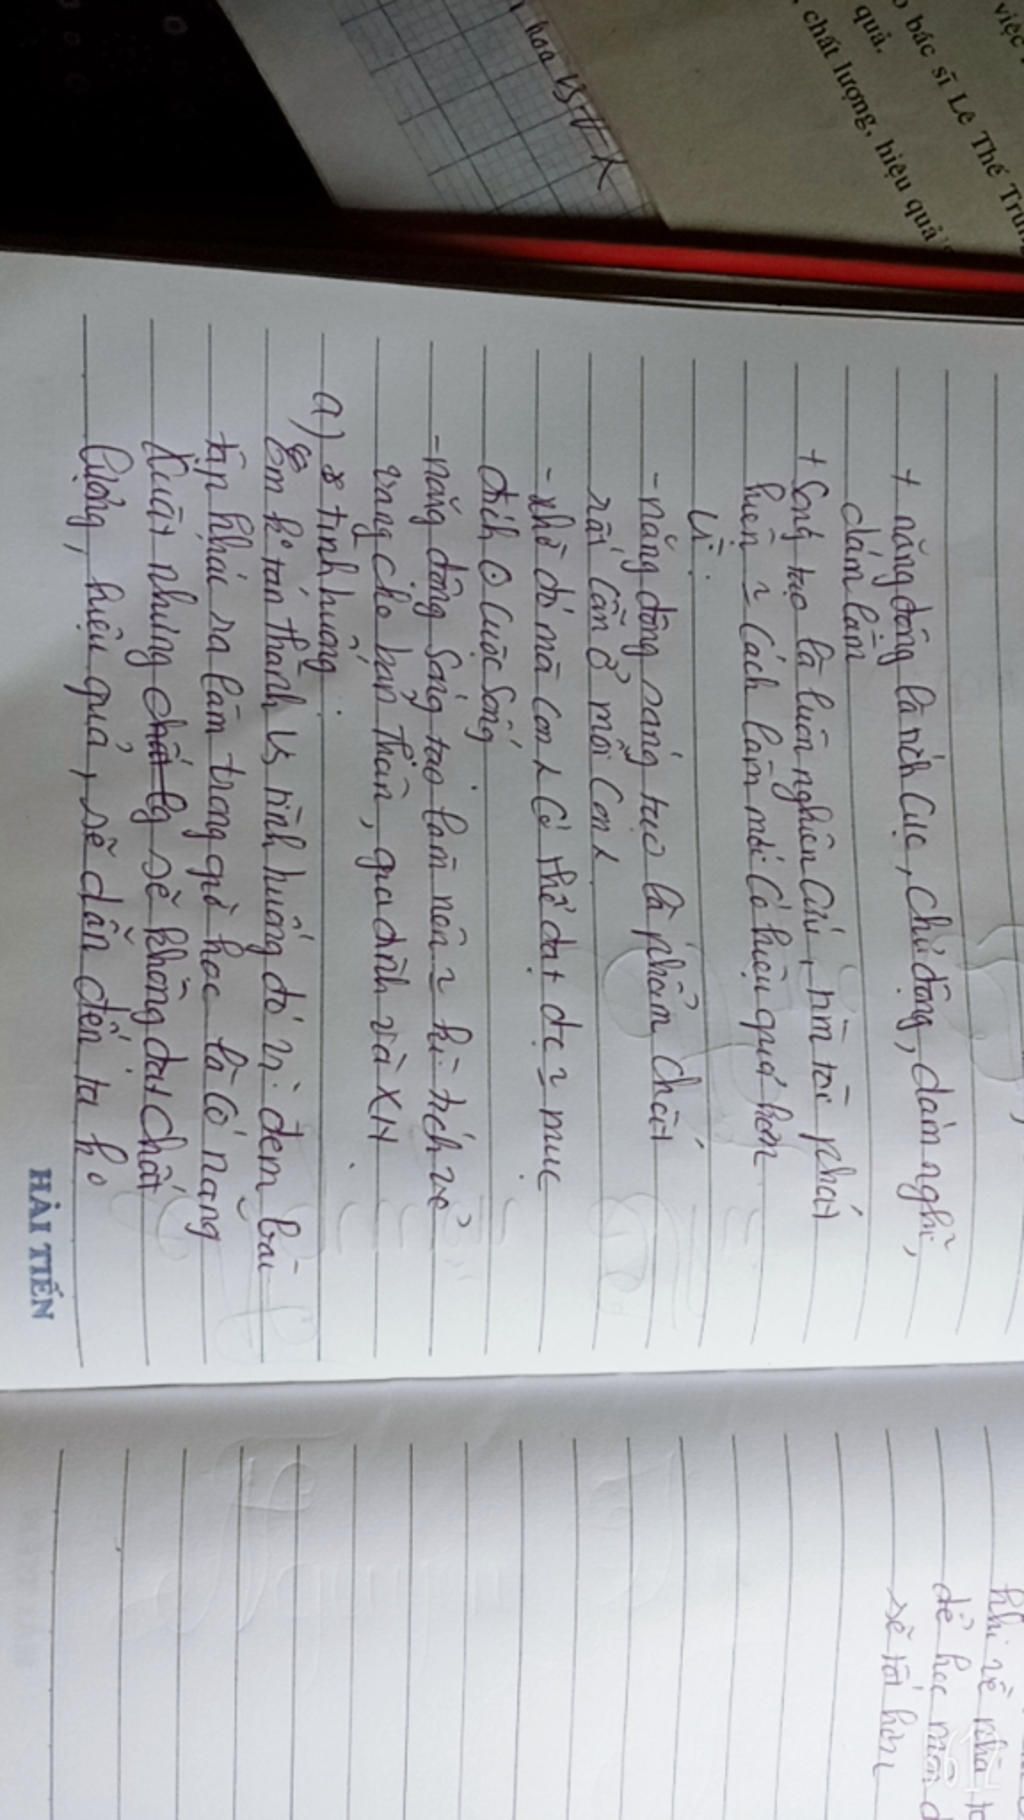 việc
bác sĩ Lê Thế Trun
quả.
chất lượng, hiệu quả
hoa
+ năng động là tích cực, chủ động, dám nghĩ,
dám làm
+ Sáng tạo là luôn nghiên cứu, tìm tòi phát
hiện ~ cách làm mới có hiệu quả hơn
Vì:
- năng động sáng tạo là phẩm chất
rất cần ở mỗi con
- nhờ đó mà con có thể đạt đc ~ mục
đích cuộc sống
- năng động sáng tạo làm nên ~ kì tích vẻ
vang cho bản thân, gia đình và XH
a) * tình huống:
Em ko tán thành vs tình huống đó vì đem bài
tập khác ra làm trong giờ học là có nang
Xuất nhưng sẽ không đạt chất
lượng, hiệu quả, sẽ dẫn đến ta ko
HẢI TIẾN
khi về nhà
để học môn
sẽ tốt hơn